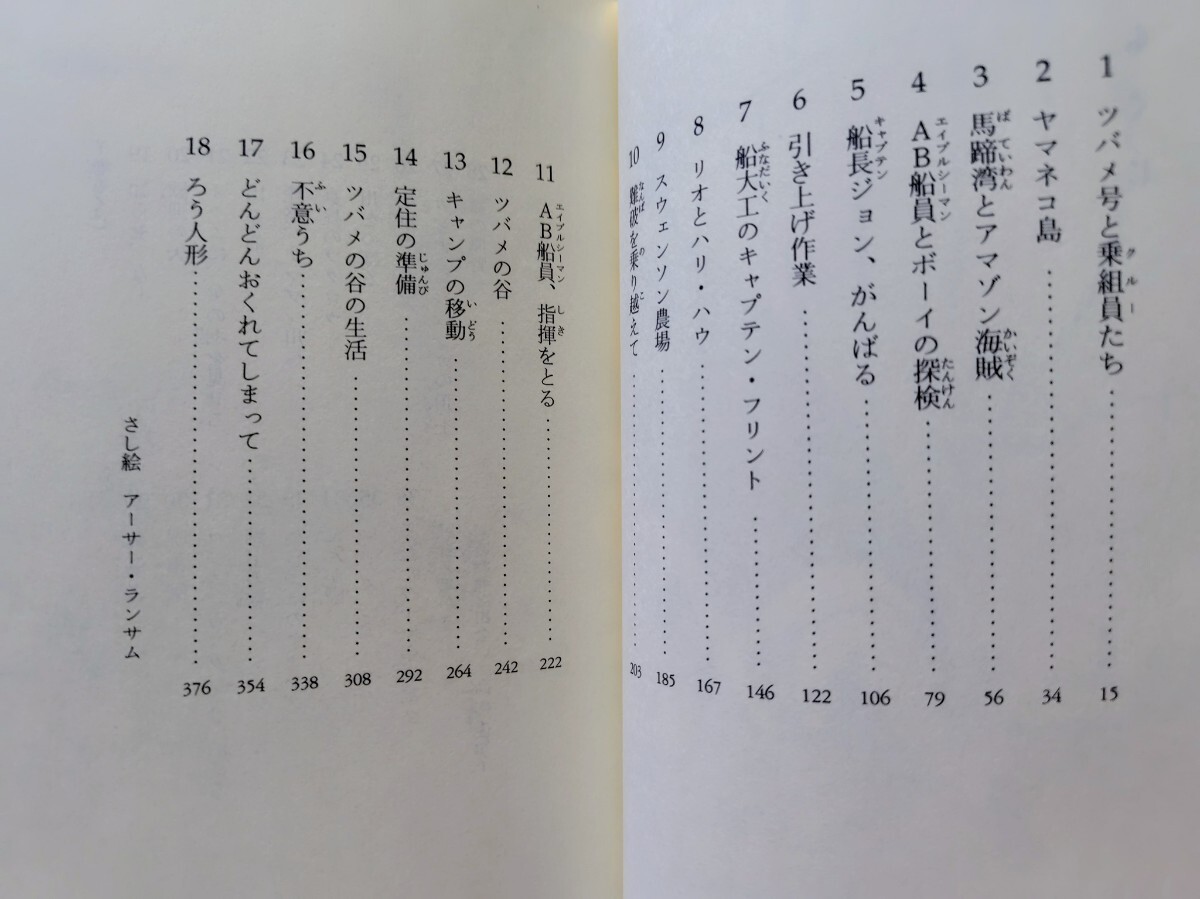 1 ツバメ号と乗組員たち……………………15
2 ヤマネコ島……………………34
3 馬蹄湾とアマゾン海賊……………………56
4 AB船員とボーイの探検……………………79
5 船長ジョン、がんばる……………………106
6 引き上げ作業……………………122
7 船大工のキャプテン・フリント……………………146
8 リオとハリ・ハウ……………………167
9 スウェンソン農場……………………185
10 難破を乗り越えて……………………203
11 AB船員、指揮をとる……………………222
12 ツバメの谷……………………242
13 キャンプの移動……………………264
14 定住の準備……………………292
15 ツバメの谷の生活……………………308
16 不意うち……………………338
17 どんどんおくれてしまって……………………354
18 ろう人形……………………376
さし絵 アーサー・ランサム